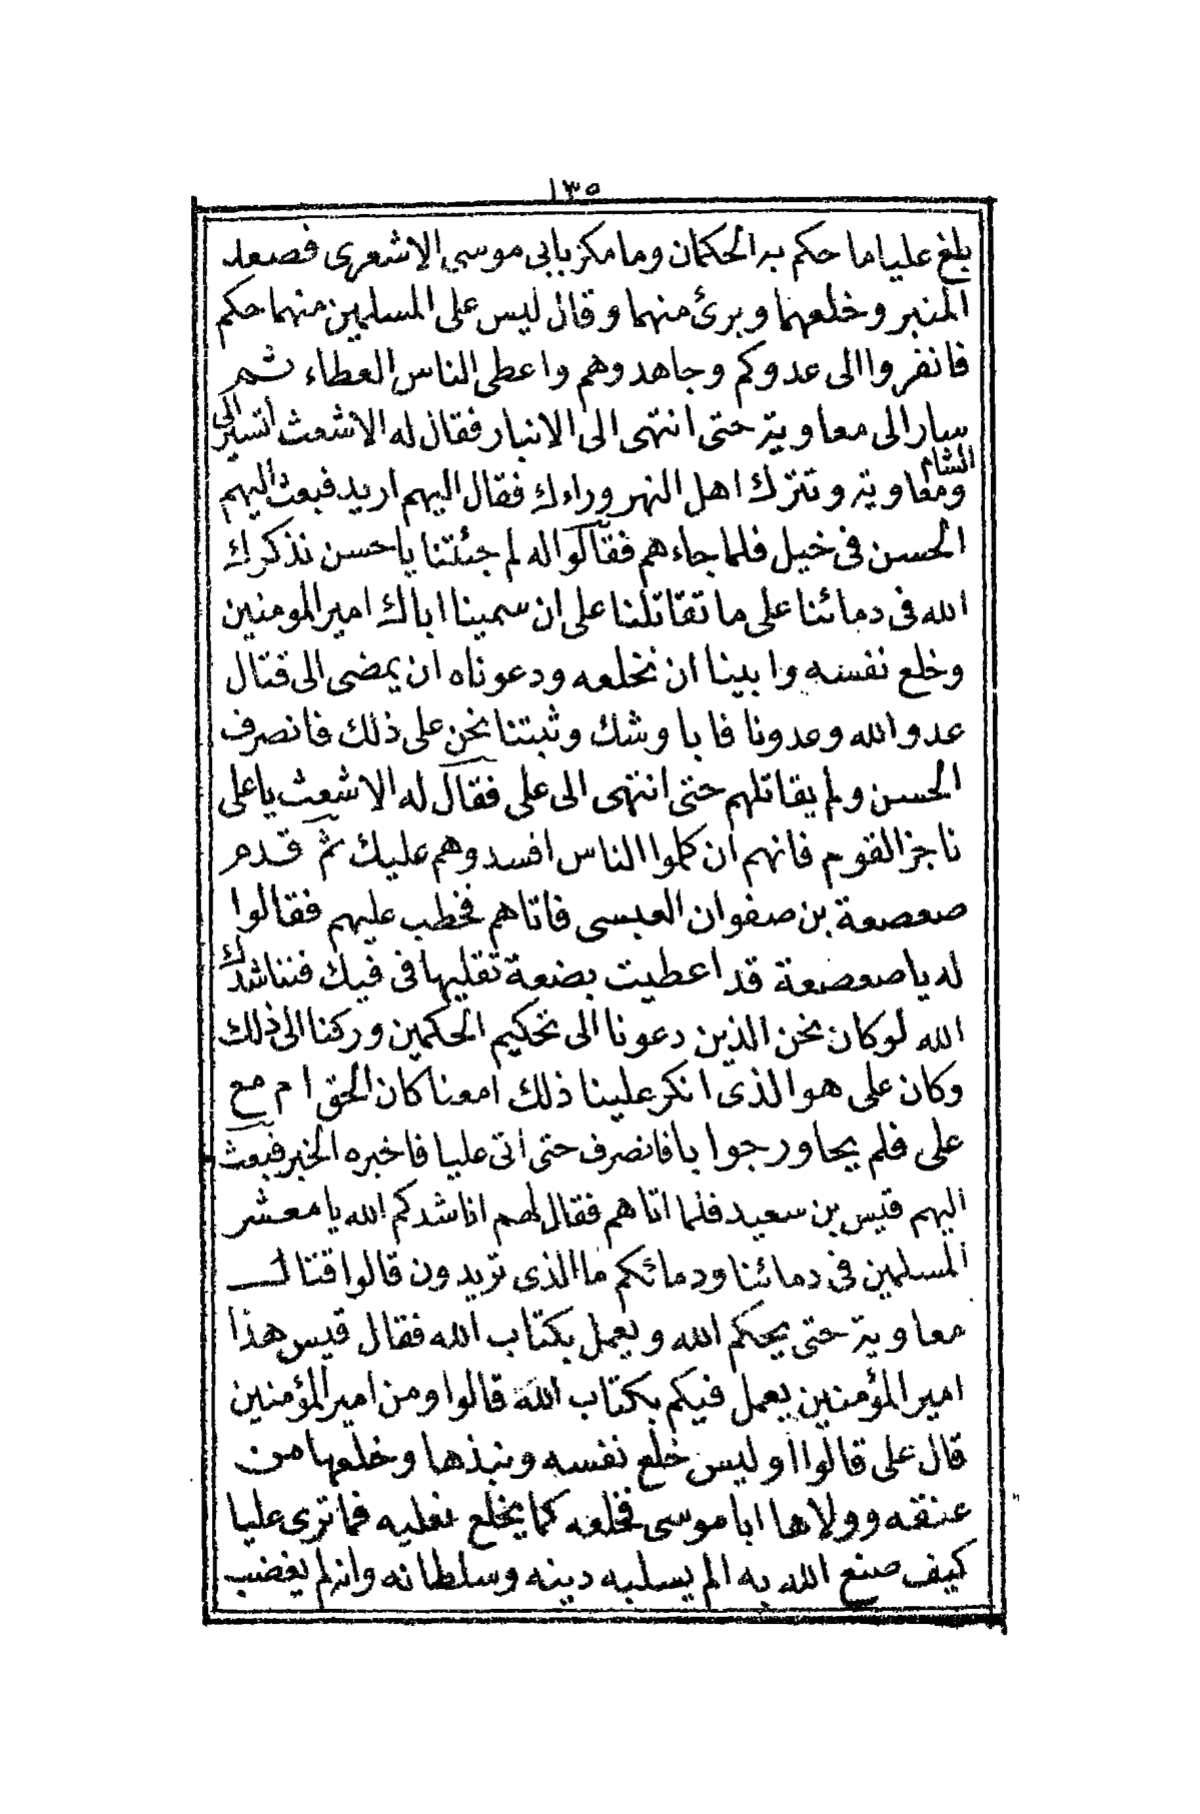 ١٣٥
بلغ عليا ما حكم به الحكمان وما مكر بابي موسى الاشعرى فصعد
المنبر وخلعهما وبرئ منهما وقال ليس على المسلمين منهما حكم
فانفروا الى عدوكم وجاهدوهم واعطى الناس العطاء ثم
سار الى معاوية حتى انتهى الى الانبار فقال له الاشعث اتسير الى
الشام
ومعاوية وتترك اهل النهر وراءك فقال اليهم اريد فبعث اليهم
الحسن فى خيل فلما جاءهم فقالوا له لم جئتنا يا حسن نذكرك
الله فى دمائنا على ما تقاتلنا على ان سمينا اباك امير المومنين
وخلع نفسه وابينا ان نخلعه ودعوناه ان يمضى الى قتال
عدو الله وعدونا فابا وشك وثبتنا نحن على ذلك فانصرف
الحسن ولم يقاتلهم حتى انتهى الى على فقال له الاشعث يا على
ناجز القوم فانهم ان كلموا الناس افسدوهم عليك ثم قدم
صعصعة بن صفوان العبسى فاتاهم فخطب عليهم فقالوا
له يا صعصعة قد اعطيت بضعة تقليها فى فيك فنناشدك
الله لو كان نحن الذين دعونا الى تحكيم الحكمين وركنا الى ذلك
وكان على هو الذى انكر علينا ذلك امعنا كان الحق ام مع
على فلم يحاور جوابا فانصرف حتى اتى عليا فاخبره الخبر فبعث
اليهم قيس بن سعيد فلما اتاهم فقال لهم اناشدكم الله يا معشر
المسلمين فى دمائنا ودمائكم ما الذى تريدون قالوا قتال
معاوية حتى يحكم الله ويعمل بكتاب الله فقال قيس هذا
امير المؤمنين يعمل فيكم بكتاب الله قالوا ومن امير المؤمنين
قال على قالوا اوليس خلع نفسه ونبذها وخلعها من
عنقه وولاها ابا موسى فخلعه كما يخلع نعليه فما ترى عليا
كيف صنع الله به الم يسلبه دينه وسلطانه وانه لم يغضب